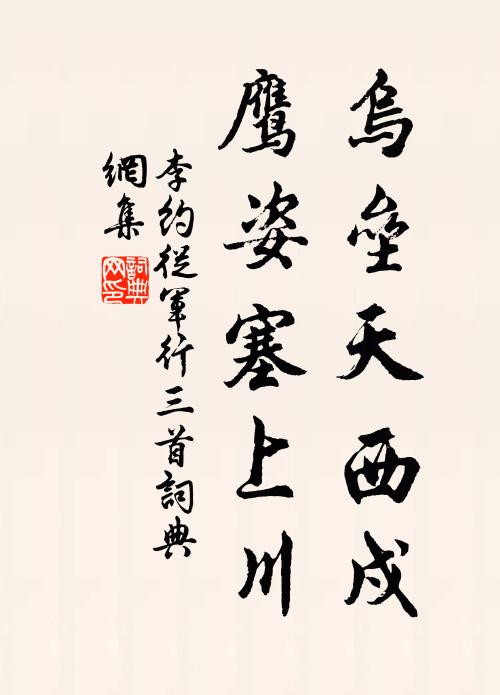 烏垒天西戍
鷹姿塞上川
李約從軍行三首詞典
網集
詞典
网印